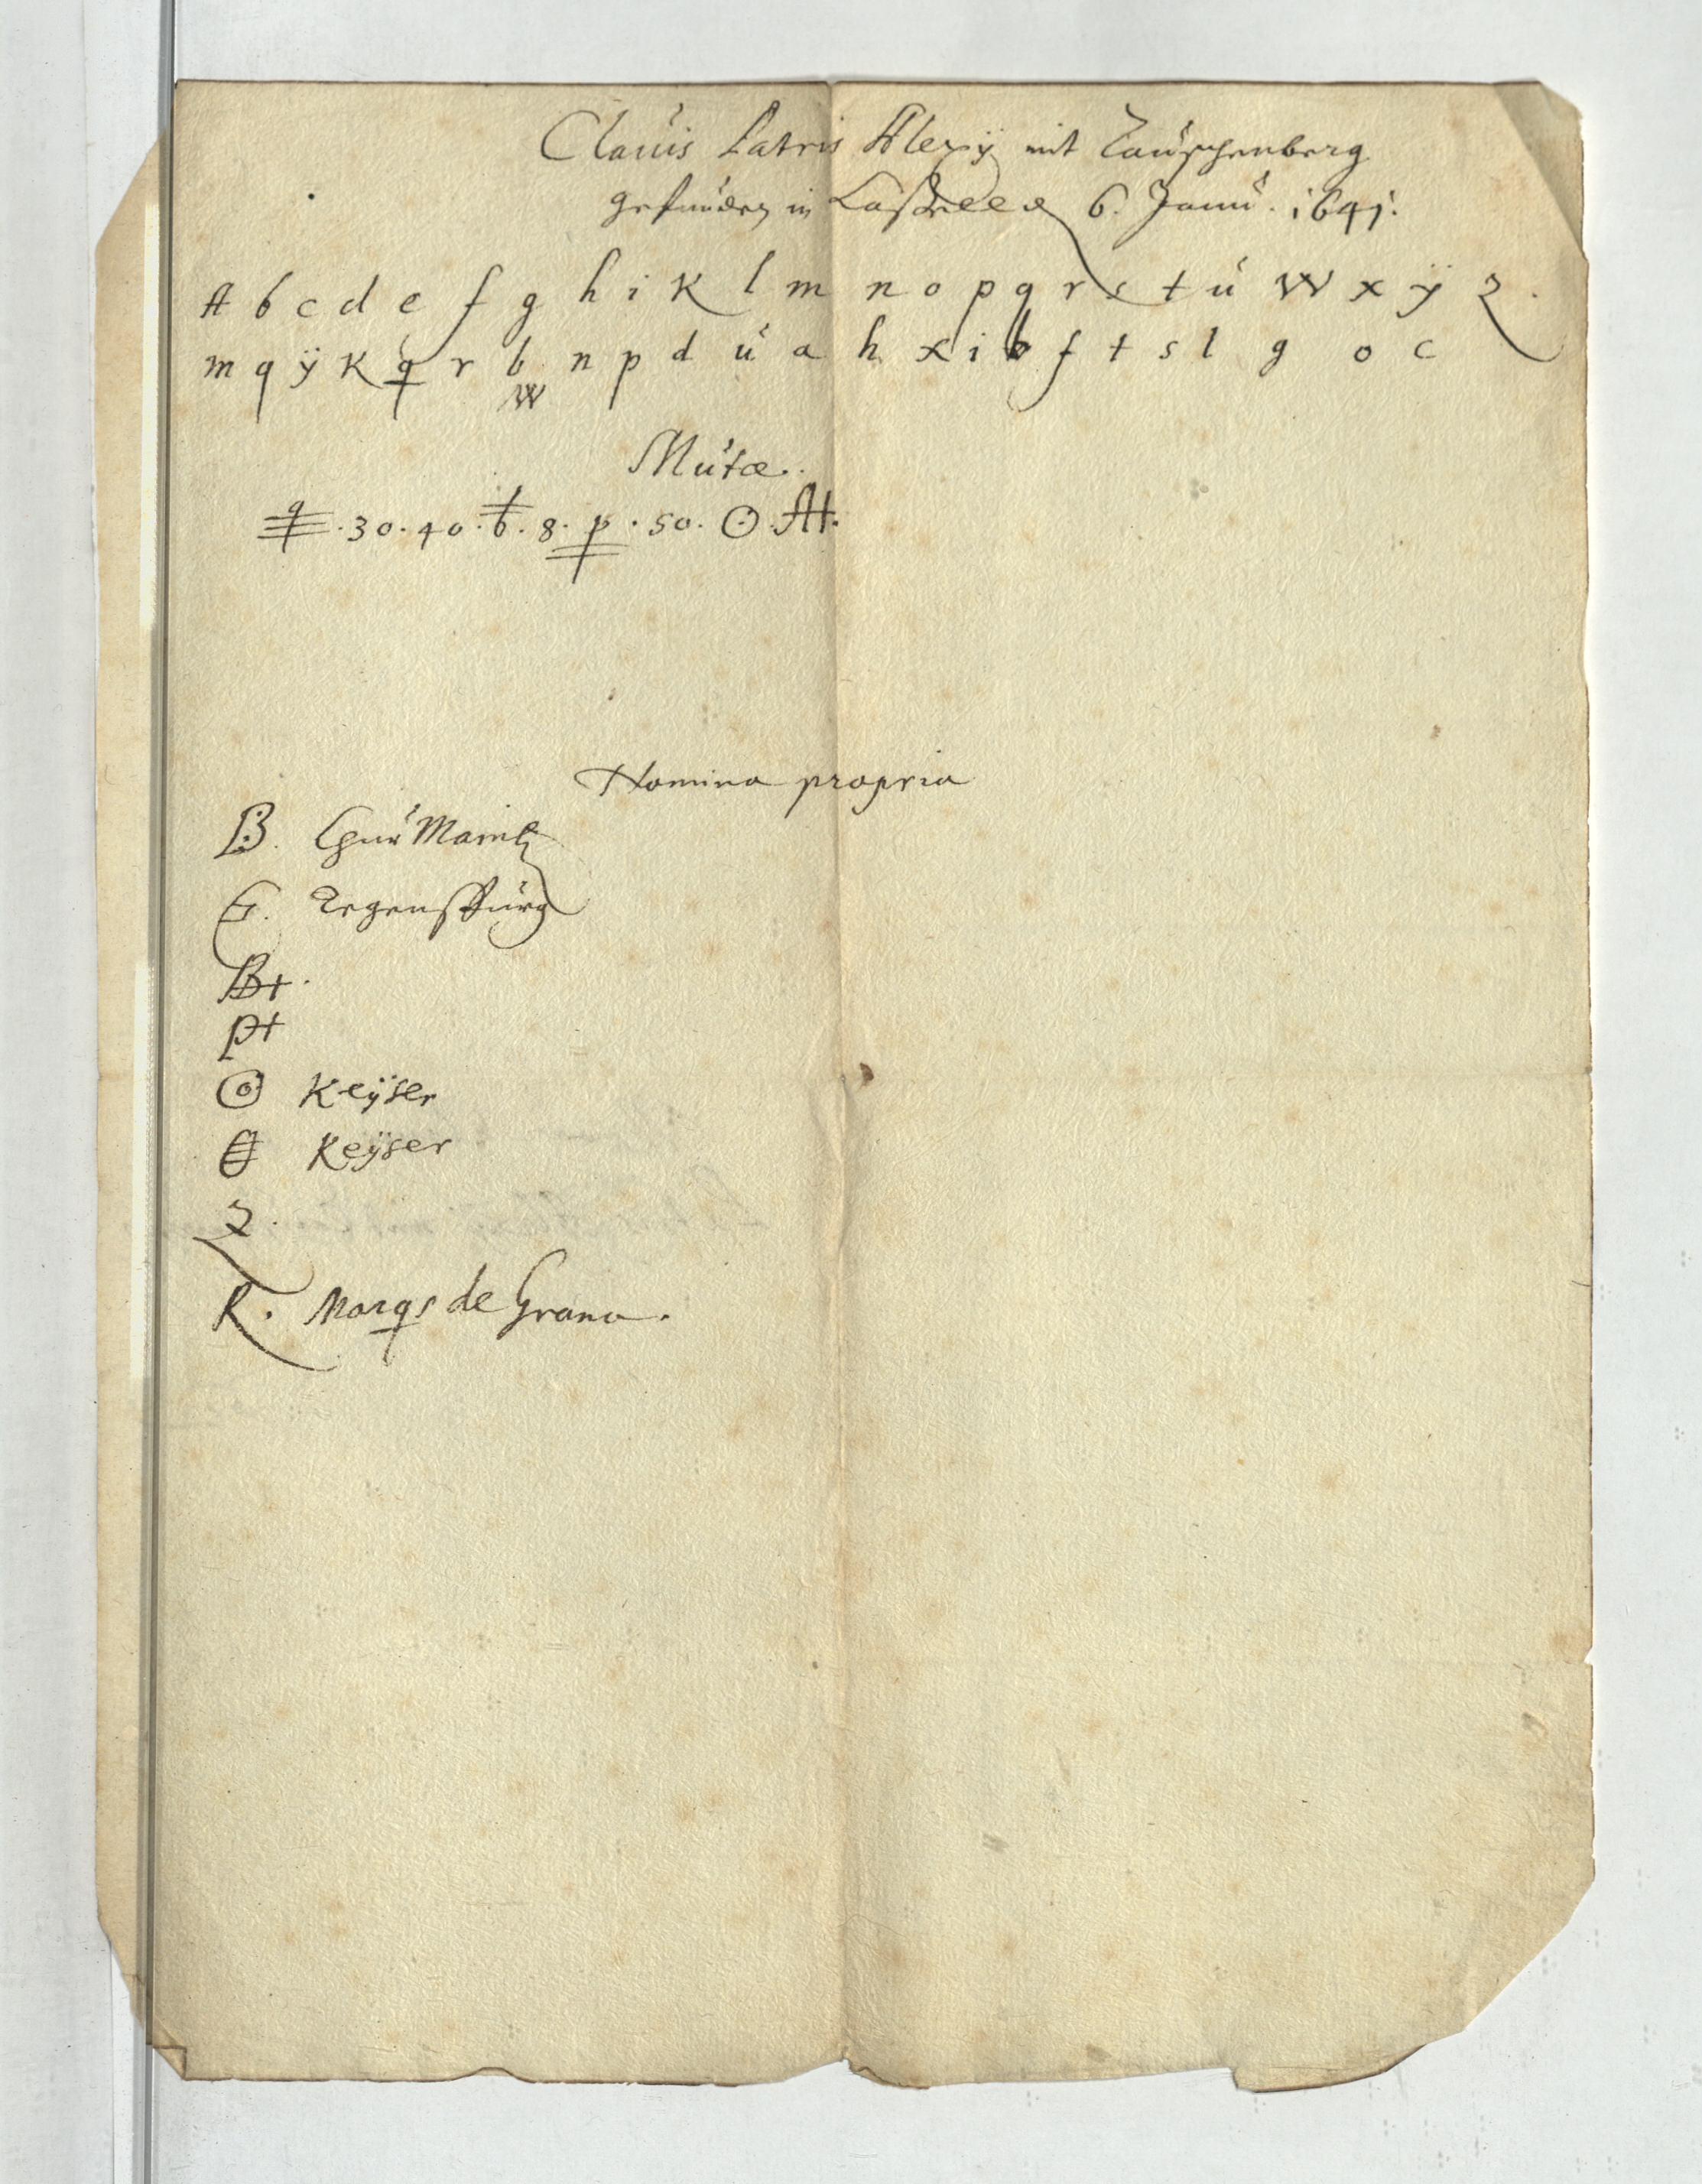 Clauis Patris Alexÿ mit Rauschenberg
gefunden in Cassell d 6. Janu. 1641.
A b c d e f g h i k l m n o p q r s t u w x ÿ z.
m q ÿ k q r b n p d u a h x i b f t s l g o c
w
Mutæ.
q . 30 . 40 . b . 8 . p . 50 . ⊙ . A+.
Nomina propria
B. Chur Maintz
G. Regenspurg
B+.
P+
⊙ Keÿser
Keÿser
Z.
R. Marqs de Grana.